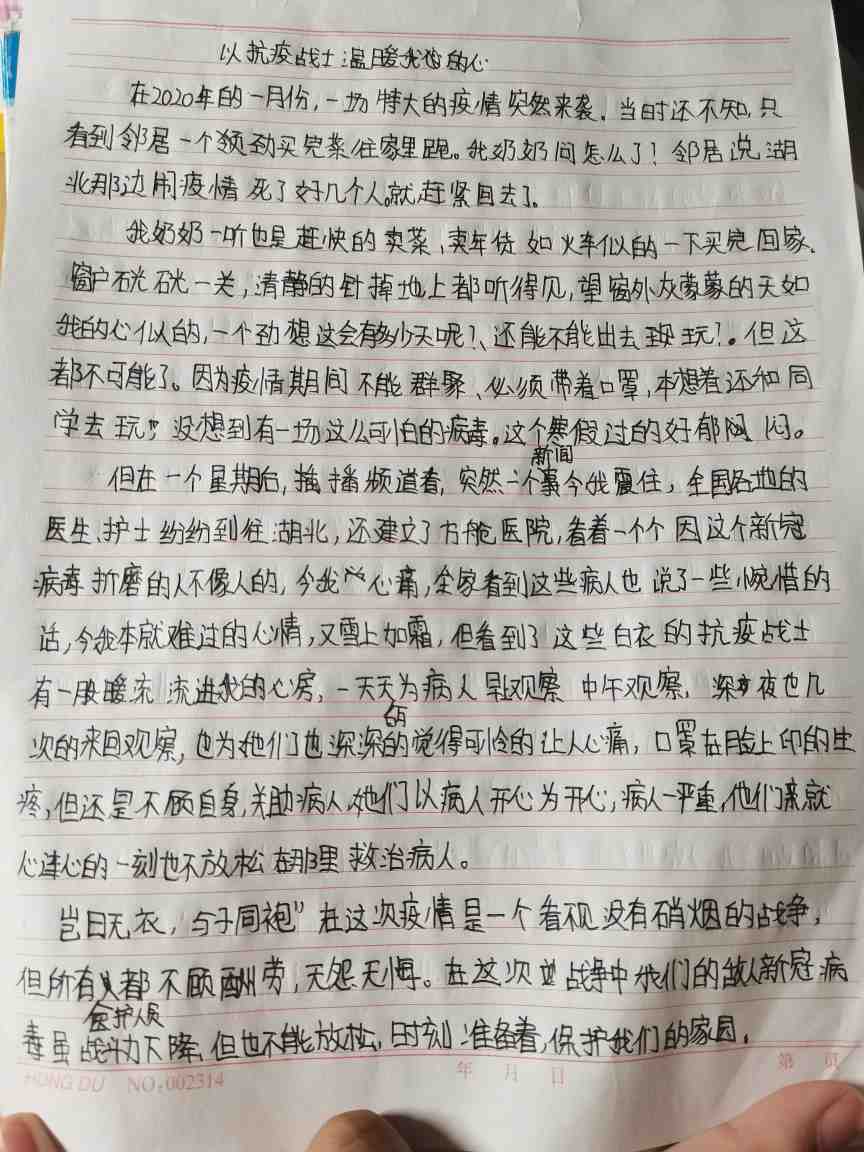 以抗疫战士温暖我的心
在2020年的一月份，一场特大的疫情突然来袭。当时还不知,只
看到邻居一个领劲买完菜往家里跑。我奶奶问怎么了！邻居说湖
北那边闹疫情死了好几个人。就赶紧回去了。
我奶奶一听也是赶快的卖菜、卖年货如火车似的一下买完回家、
窗户硄硄一关，清静的针掉地上都听得见，望窗外灰蒙蒙的天如
我的心似的，一个劲想这会有多少天呢？、还能不能出去玩？。但这
都不可能了。因为疫情期间不能群聚、必须带着口罩，本想着还和同
学去玩，没想到有一场这么可怕的病毒。这个寒假过的好郁闷闷。
但在一个星期后，播频道看，突然一个新闻今我震住，全国各地的
医生、护士纷纷到往湖北，还建立了方舱医院，看着一个个因这个新冠
病毒折磨的人不像人的，今我心痛，全家看到这些病人也说了一些惋惜的
话，今我本就难过的心情，又雪上加霜，但看到了这些白衣的抗疫战士
有一股暖流流进我的心房，一天天为病人早观察中午观察，深夜也几
次的来回观察，也为她们也深深的觉得可怜的让人心痛，口罩在脸上印的生
疼，但还是不顾自身，关助病人，她们以病人开心为开心，病人一严重，他们就
心连心的一刻也不放松在那里救治病人。
岂曰无衣，与子同袍”在这次疫情是一个看不见没有硝烟的战争，
但所有医护人员都不顾酬劳，无怨无悔。在这次战争中我们的敌人新冠病
毒虽战斗力下降、但也不能放松，时刻准备着，保护我们的家园。
HONG DU NO:002314 年 月 日 第 页